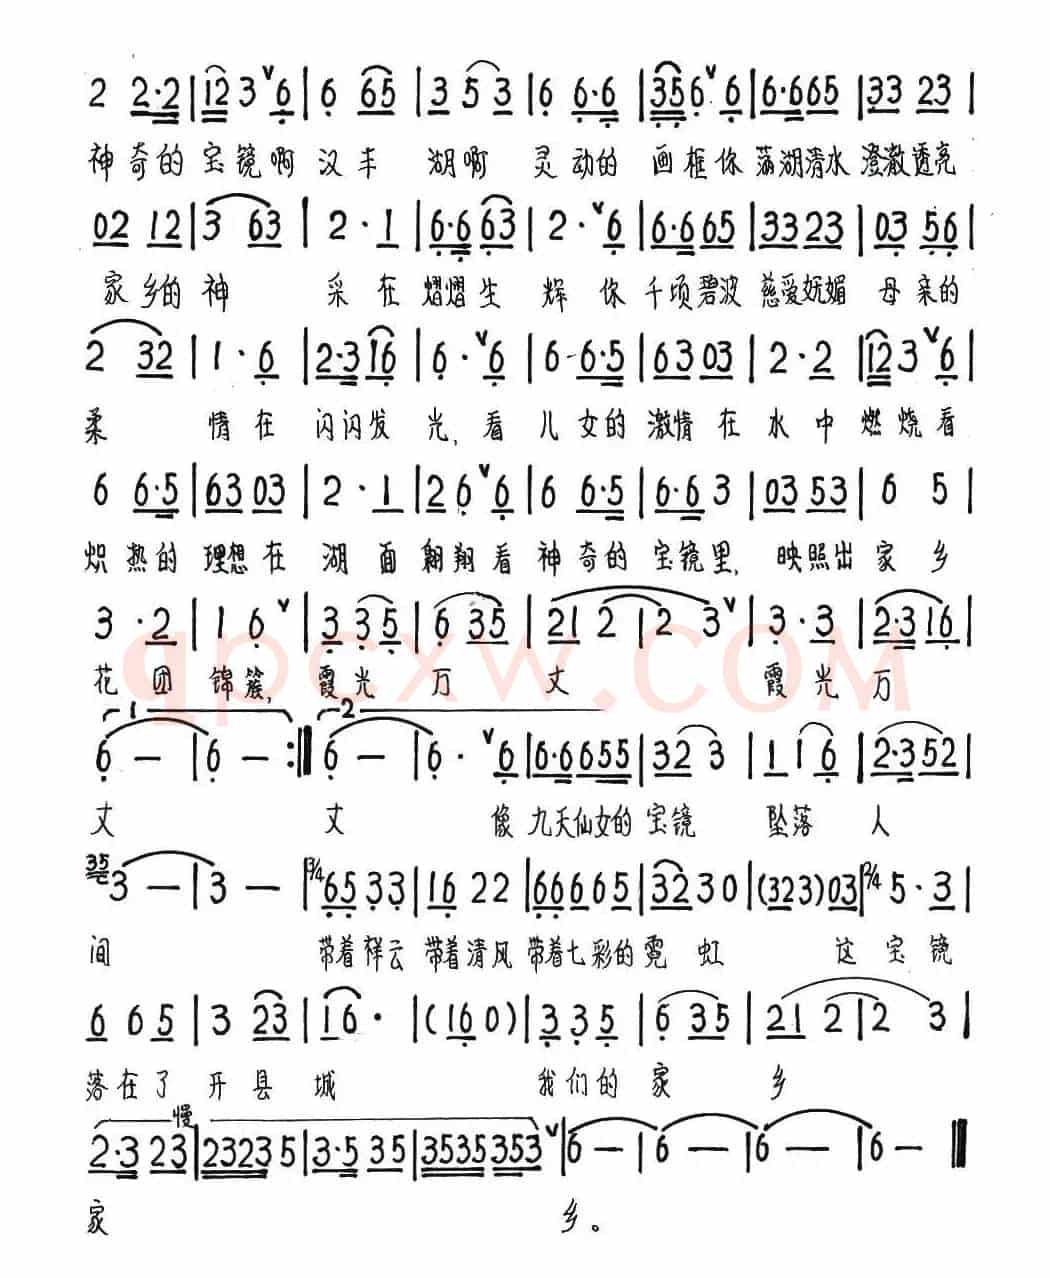 2 2·2 | 12 3 ∨ 6 | 6 65 | 3 5 3 | 6 6·6 | 35 6 ∨ 6 | 6·6 65 | 33 23 |
神奇的宝镜啊汉丰湖啊灵动的画框你荡湖清水澄澈透亮
02 12 | 3 63 | 2·1 | 6·6 63 | 2·∨ 6 | 6·6 65 | 33 23 | 03 56 |
家乡的神采在熠熠生辉你千顷碧波慈爱妩媚母亲的
2 32 | 1·6 | 2·3 16 | 6·∨ 6 | 6 6·5 | 63 03 | 2·2 | 12 3 ∨ 6 |
柔情在闪闪发光,看儿女的激情在水中燃烧看
6 6·5 | 63 03 | 2·1 | 2 6 ∨ 6 | 6 6·5 | 6·6 3 | 03 53 | 6 5 |
炽热的理想在湖面翱翔看神奇的宝镜里,映照出家乡
3·2 | 1 6 ∨ | 3 3 5 | 6 35 | 21 2 | 2 3 ∨ | 3·3 | 2·3 16 |
花团锦簇,霞光万丈霞光万
1 2
6 – | 6 – :| 6 – | 6·∨ 6 | 6·6 6555 | 32 3 | 1 1 6 | 2·3 52 |
丈丈像九天仙女的宝镜坠落人
35 3 – | 3 – | 3/4 65 33 | 16 22 | 66 66 5 | 32 30 | (323) 03 | 2/4 5·3 |
间带着祥云带着清风带着七彩的霓虹这宝镜
6 6 5 | 3 23 | 16· | (16 0) | 3 3 5 | 6 35 | 21 2 | 2 3 |
落在了开县城我们的家乡
慢
2·3 23 | 2323 5 | 3·5 35 | 3535 353 ∨ | 6 – | 6 – | 6 – | 6 – ‖
家乡。
qpcxw.COM